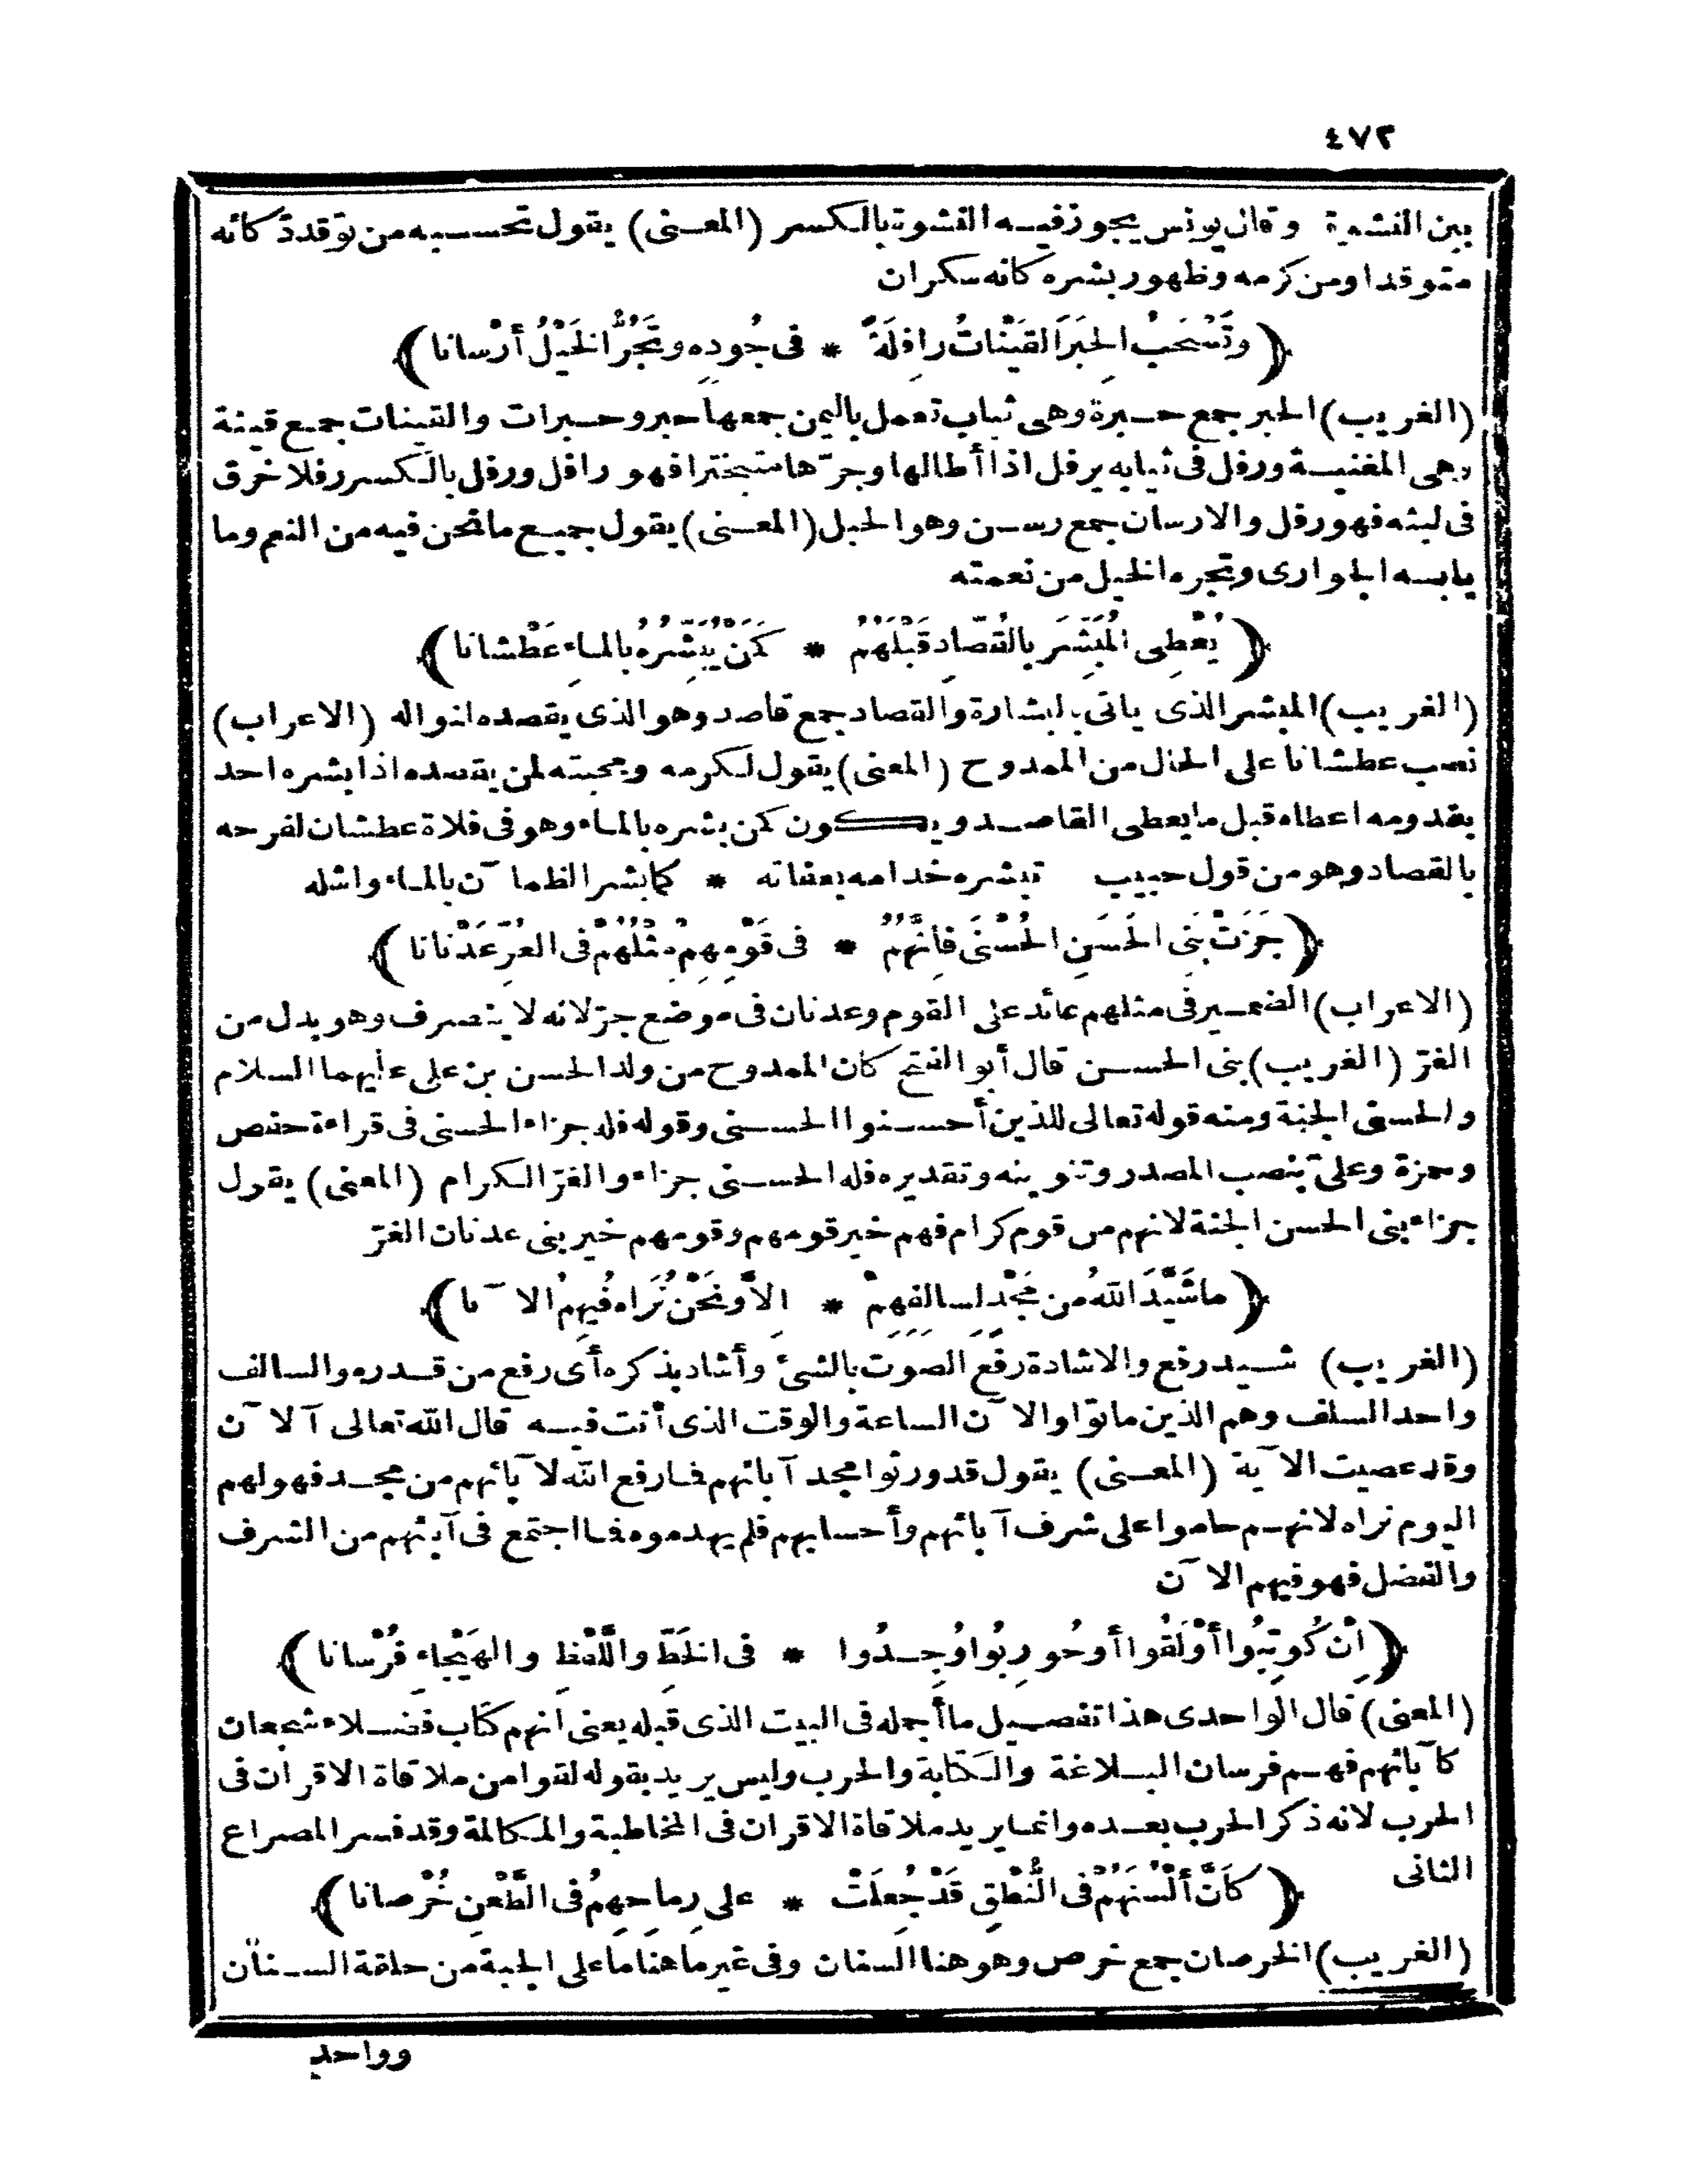 ٤٧٢
بين النشوة وقال يونس يجوز فيه النشوة بالكسر (المعنى) يقول تحسبه من توقده كأنه
متوقدا ومن كرمه وظهور بشره كانه سكران
﴿وتَسْحَبُ الحِبَرَ القَيْناتُ رافِلَةً * فى جُودِه وتَجُرُّ الخَيْلُ أرْسانا﴾
(الغريب) الحبر جمع حبرة وهى ثياب تعمل باليمن جمعها حبر وحبرات والقينات جمع قينة
وهى المغنية ورفل فى ثيابه يرفل اذا أطالها وجرّها متبخترا فهو رافل ورفل بالكسر رفلا خرق
فى لبثه فهو رفل والارسان جمع رسن وهو الحبل (المعنى) يقول جميع ما نحن فيه من النعم وما
يلبسه الجوارى وتجره الخيل من نعمته
﴿يُعْطِى المُبَشِّرَ بالقُصّادِ قَبْلَهُمُ * كَمَنْ يُبَشِّرُهُ بالماءِ عَطْشانا﴾
(الغريب) المبشر الذى ياتى بالبشارة والقصاد جمع قاصد وهو الذى يقصده لنواله (الاعراب)
نصب عطشانا على الحال من الممدوح (المعنى) يقول لكرمه ومحبته لمن يقصده اذا بشره احد
بقدومه اعطاه قبل ما يعطى القاصد ويكون كمن بشره بالماء وهو فى فلاة عطشان لفرحه
بالقصاد وهو من قول حبيب تبشره خدامه بعفاته * كما بشر الظمآن بالماء واشله
﴿جَزَتْ بَنِى الحَسَنِ الحُسْنَى فَإِنَّهُمُ * فى قَوْمِهِمْ مِثْلُهُمْ فى الغُرِّ عَدْنانا﴾
(الاعراب) الضمير فى مثلهم عائد على القوم وعدنان فى موضع جرّ لانه لا ينصرف وهو بدل من
الغرّ (الغريب) بنى الحسن قال أبو الفتح كان الممدوح من ولد الحسن بن على عليهما السلام
والحسنى الجنة ومنه قوله تعالى للذين أحسنوا الحسنى وقوله فله جزاء الحسنى فى قراءة حفص
وحمزة وعلىّ بنصب المصدر وتنوينه وتقديره فله الحسنى جزاء والغرّ الكرام (المعنى) يقول
جزاء بنى الحسن الجنة لانهم من قوم كرام فهم خير قومهم وقومهم خير بنى عدنان الغرّ
﴿ما شَيَّدَ اللهُ من مَجْدٍ لسالفِهِمْ * إلاّ ونَحْنُ نَراه فيهِمُ الآنا﴾
(الغريب) شيد رفع والاشادة رفع الصوت بالشئ وأشاد بذكره أى رفع من قدره والسالف
واحد السلف وهم الذين ماتوا والآن الساعة والوقت الذى أنت فيه قال الله تعالى آلآن
وقد عصيت الآية (المعنى) يقول قد ورثوا مجد آبائهم فما رفع الله لآبائهم من مجد فهو لهم
اليوم نراه لانهم حاموا على شرف آبائهم وأحسابهم فلم يهدموه فما اجتمع فى آبائهم من الشرف
والفضل فهو فيهم الآن
﴿إنْ كُوتِبُوا أوْ لَقُوا أو حُورِبُوا وُجِدُوا * فى الخَطِّ واللَّفْظِ والهَيْجاءِ فُرْسانا﴾
(المعنى) قال الواحدى هذا تفصيل ما أجمله فى البيت الذى قبله يعنى انهم كتاب فضلاء شجعان
كآبائهم فهم فرسان البلاغة والكتابة والحرب وليس يريد بقوله لقوا من ملاقاة الاقران فى
الحرب لانه ذكر الحرب بعده وانما يريد ملاقاة الاقران فى المخاطبة والمكالمة وقد فسر المصراع
الثانى
﴿كأنَّ ألْسُنَهُمْ فى النُّطْقِ قَدْ جُعِلَتْ * على رِماحِهِمُ فى الطَّعْنِ خُرْصانا﴾
(الغريب) الخرصان جمع خرص وهو هنا السنان وفى غير ما هنا ما على الجبة من حلقة السنان
وواحد